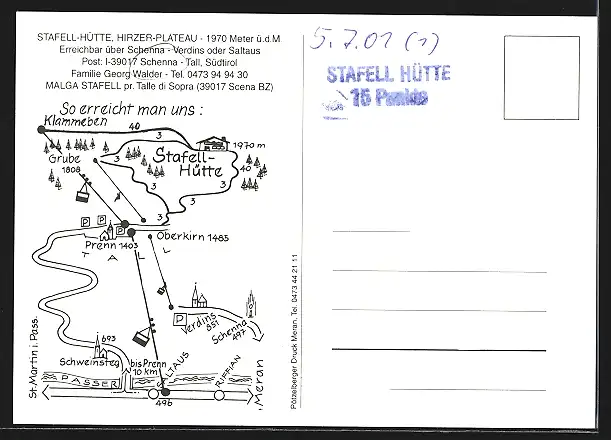 STAFELL-HÜTTE, HIRZER-PLATEAU - 1970 Meter ü.d.M
Erreichbar über Schenna - Verdins oder Saltaus
Post: I-39017 Schenna - Tall, Südtirol
Familie Georg Walder - Tel. 0473 94 94 30
MALGA STAFELL pr. Talle di Sopra (39017 Scena BZ)
So erreicht man uns :
Klammeben
40
3
1970 m
Grube
1808
3
Stafell-
Hütte
40
3
3
3
P P
Prenn 1403
Oberkirn 1485
TALL
P
Verdins
851
Schenna
497
693
Schweinsteg
bis Prenn
10 km
SALTAUS
RIFFIAN
Meran
St. Martin i. Pass.
PASSER
496
Pötzelberger Druck Meran, Tel. 0473 44 21 11
5.7.01 (1)
STAFELL HÜTTE
15 Punkte